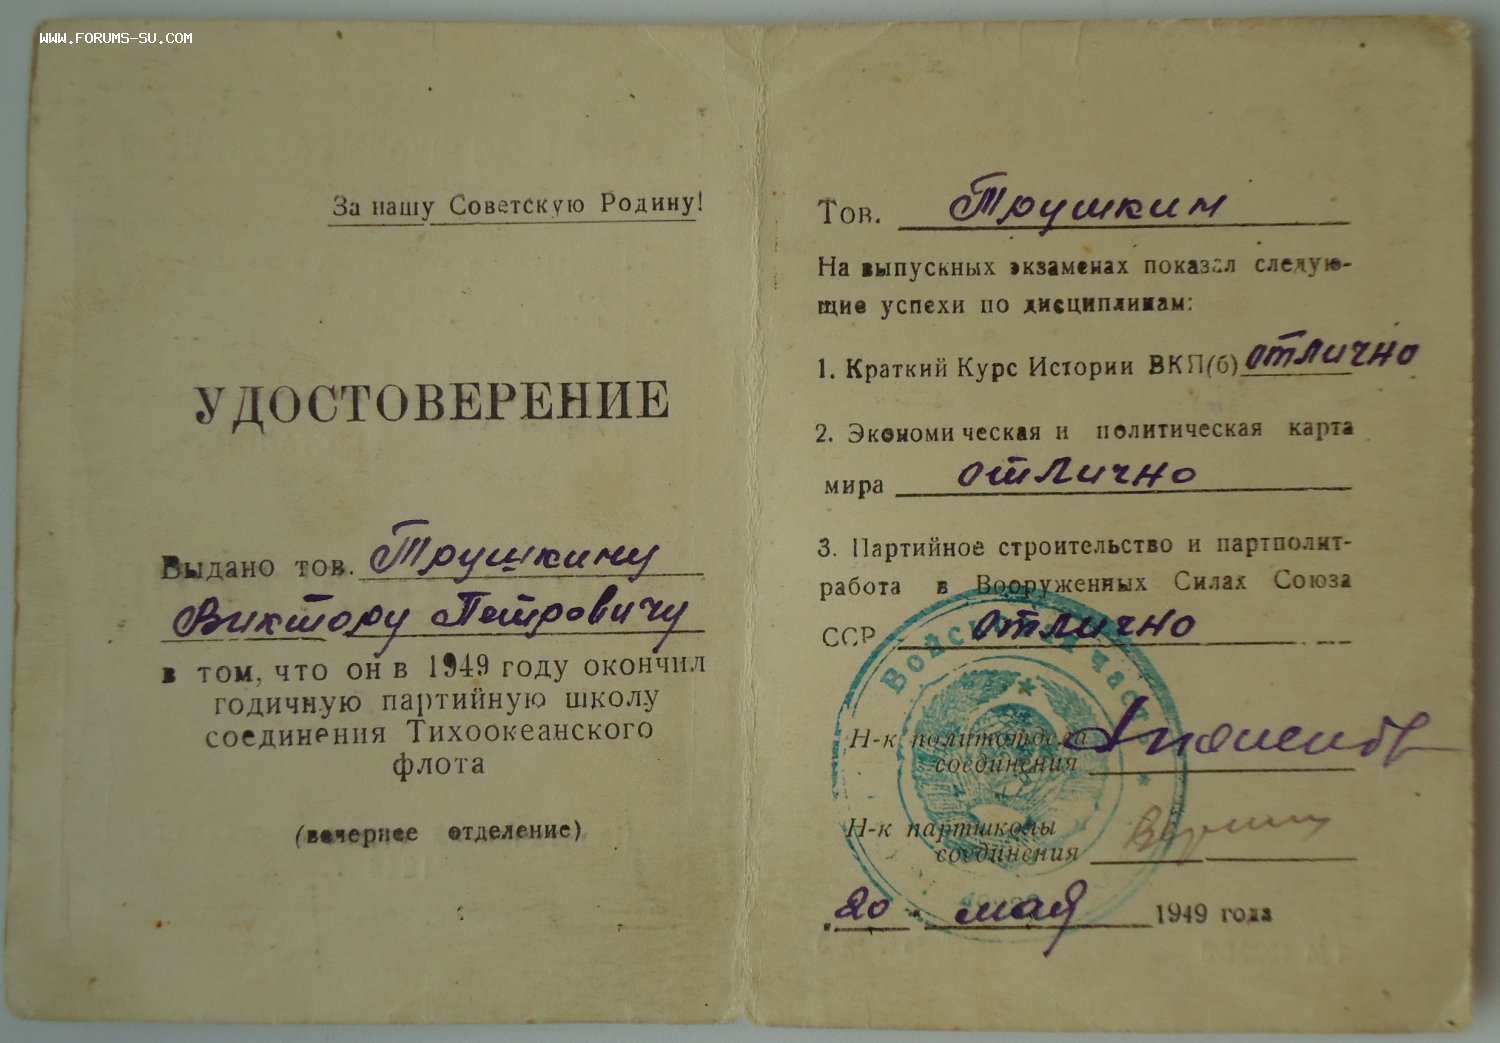 WWW.FORUMS-SU.COM
За нашу Советскую Родину!
УДОСТОВЕРЕНИЕ
Выдано тов. Трушкину
Виктору Петровичу
в том, что он в 1949 году окончил
годичную партийную школу
соединения Тихоокеанского
флота
(вечернее отделение)
Тов. Трушкин
На выпускных экзаменах показал следую-
щие успехи по дисциплинам:
1. Краткий Курс Истории ВКП(б) отлично
2. Экономическая и политическая карта
мира отлично
3. Партийное строительство и партполит-
работа в Вооруженных Силах Союза
ССР отлично
Войсковая часть
Н-к политотдела
соединения
Н-к партшколы
соединения
20 мая 1949 года